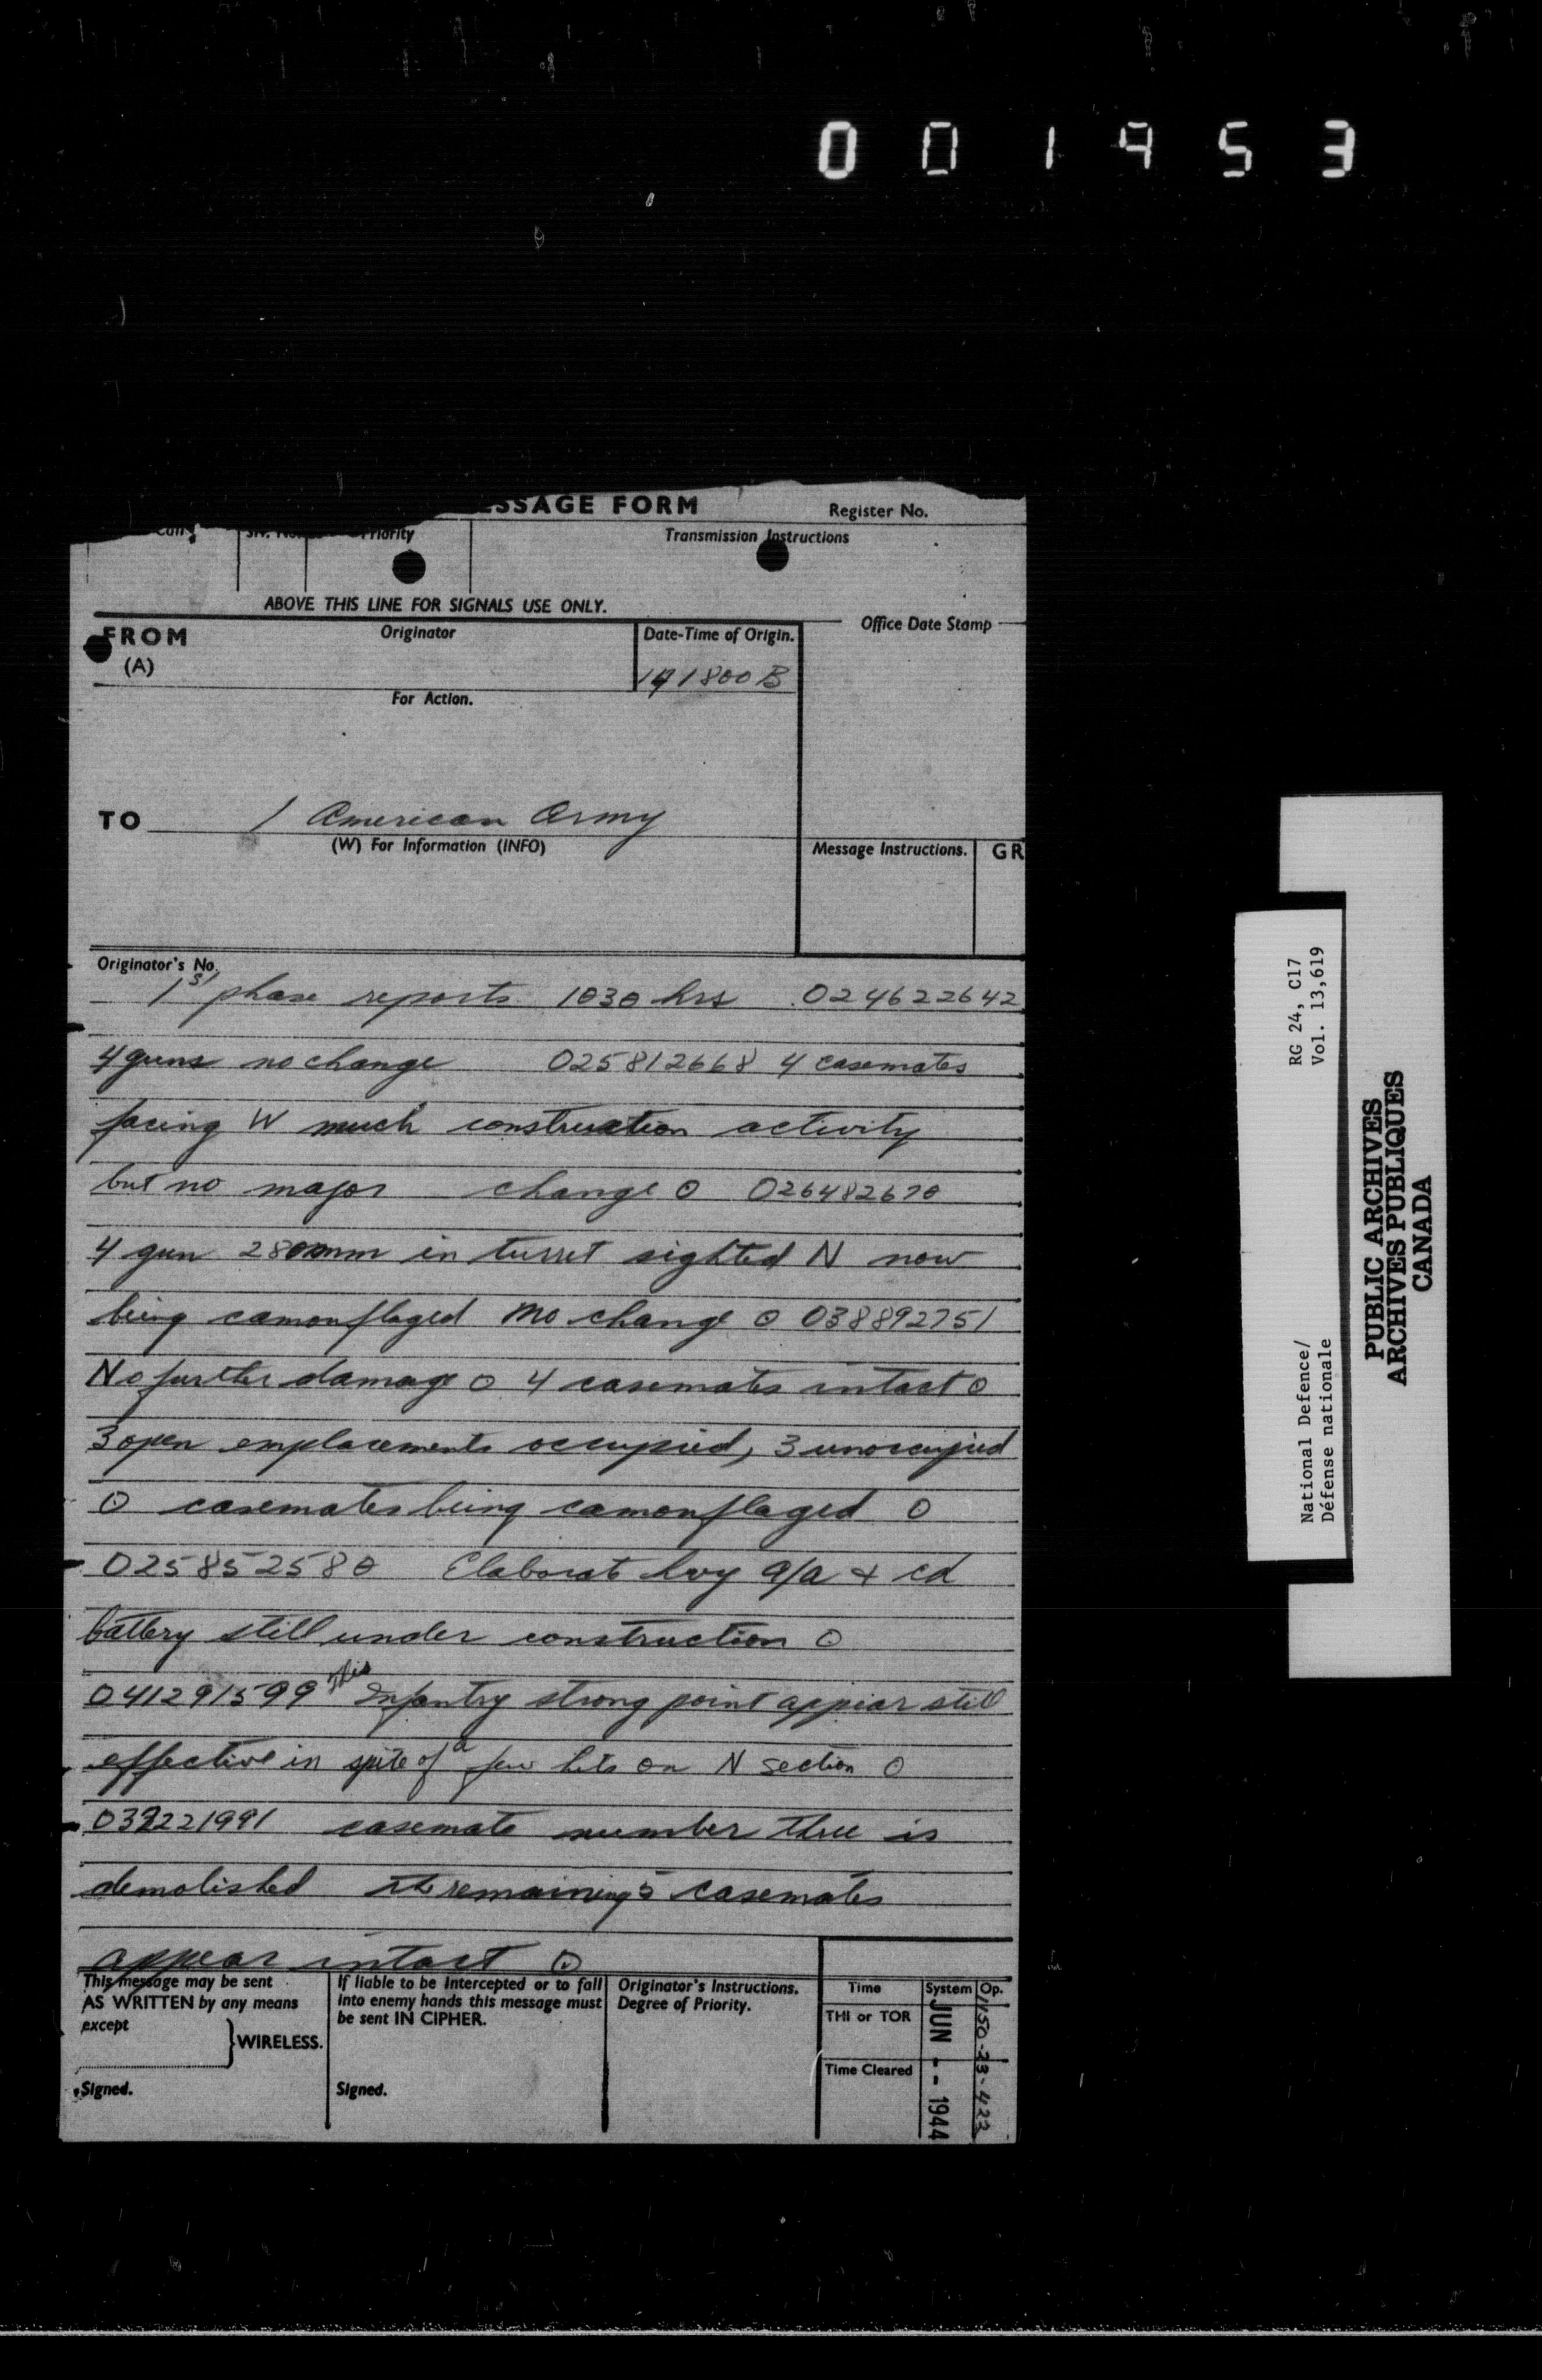 001953
MESSAGE FORM
Register No.
Call
Sr. No.
Priority
Transmission Instructions
ABOVE THIS LINE FOR SIGNALS USE ONLY.
FROM
(A)
Originator
Date-Time of Origin.
191800 B
Office Date Stamp
For Action.
TO
1 American Army
(W) For Information (INFO)
Message Instructions.
GR
Originator's No.
1st phase reports 1030 hrs 024622642
4 guns no change 025812668 4 casemates
facing W much construction activity
but no major change ⊙ 026482670
4 gun 280mm in turret sighted N now
being camouflaged no change ⊙ 038892751
No further damage ⊙ 4 casemates intact ⊙
3 open emplacements occupied, 3 unoccupied
⊙ casemates being camouflaged ⊙
025852580 Elaborate hvy a/a & cd
battery still under construction ⊙
041291599 This Infantry strong point appear still
effective in spite of a few hits on N section ⊙
039221991 casemate number three is
demolished the remaining 5 casemates
appear intact ⊙
This message may be sent
AS WRITTEN by any means
except
WIRELESS.
Signed.
If liable to be intercepted or to fall
into enemy hands this message must
be sent IN CIPHER.
Signed.
Originator's Instructions.
Degree of Priority.
Time
System
Op.
THI or TOR
Time Cleared
JUN -- 1944
1150-23-423
RG 24, C17
Vol. 13,619
National Defence/
Défense nationale
PUBLIC ARCHIVES
ARCHIVES PUBLIQUES
CANADA